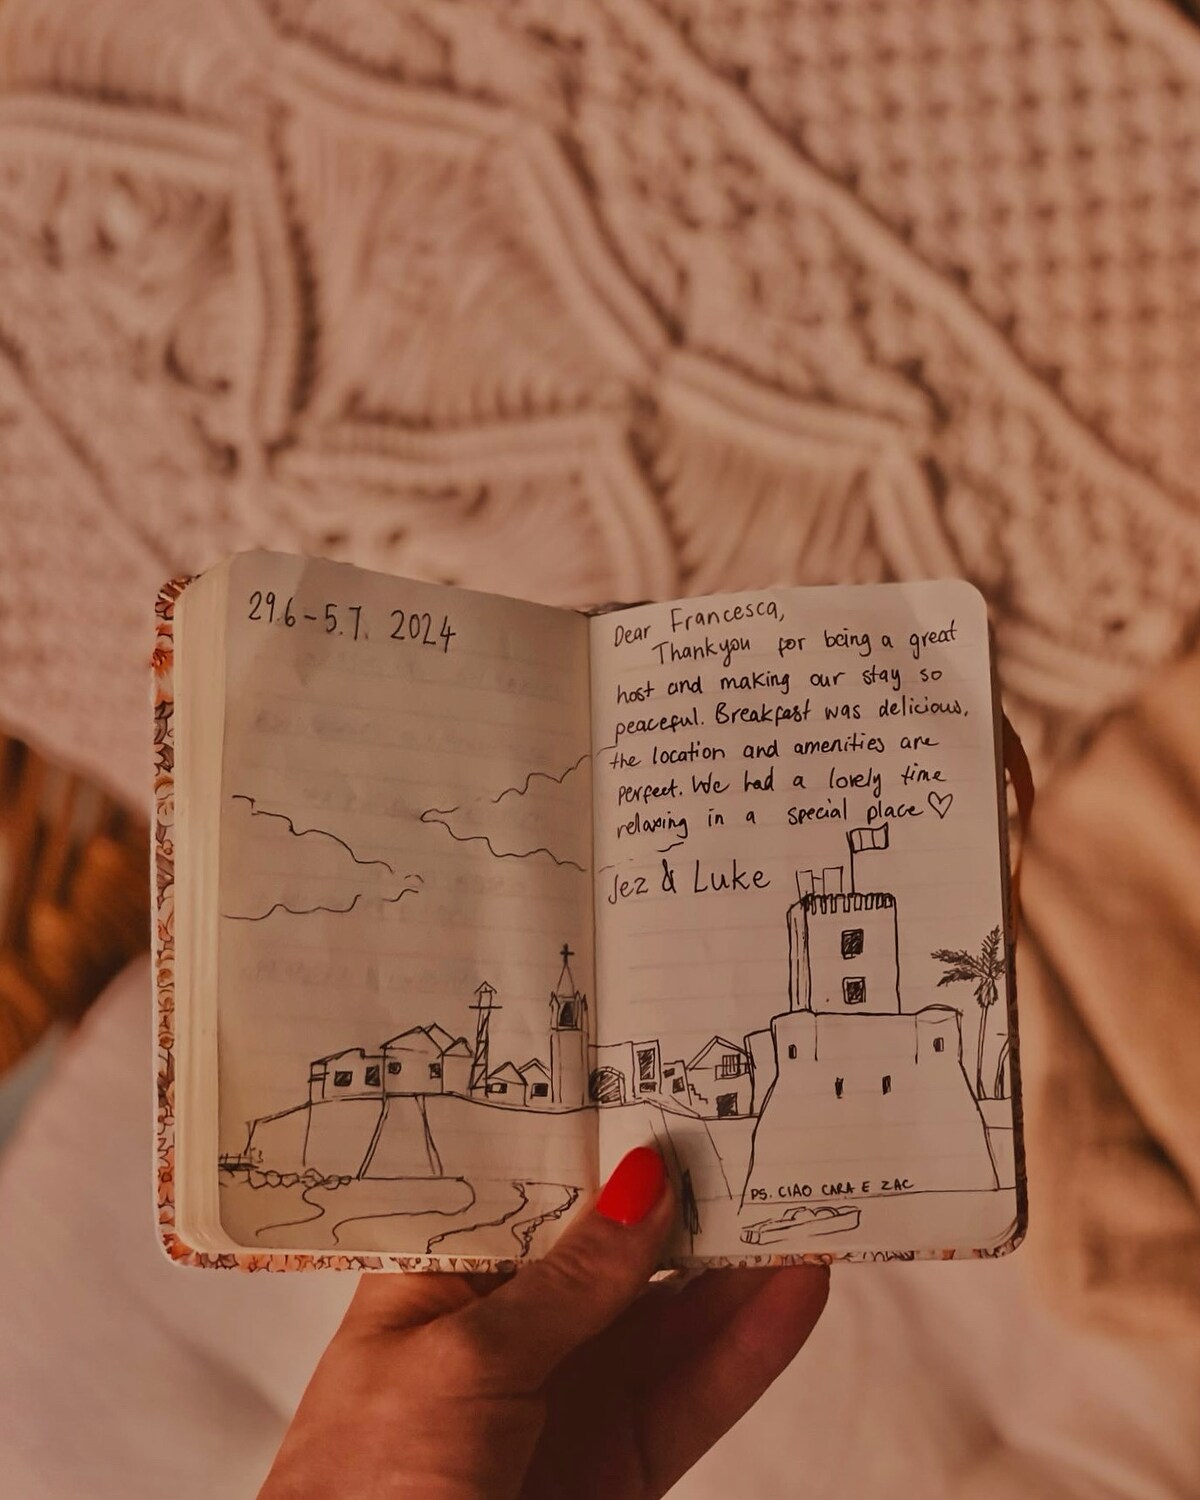 29.6 - 5.7. 2024
Dear Francesca,
Thankyou for being a great
host and making our stay so
peaceful. Breakfast was delicious,
the location and amenities are
perfect. We had a lovely time
relaxing in a special place ♡
Jez & Luke
PS. CIAO CARA E ZAC